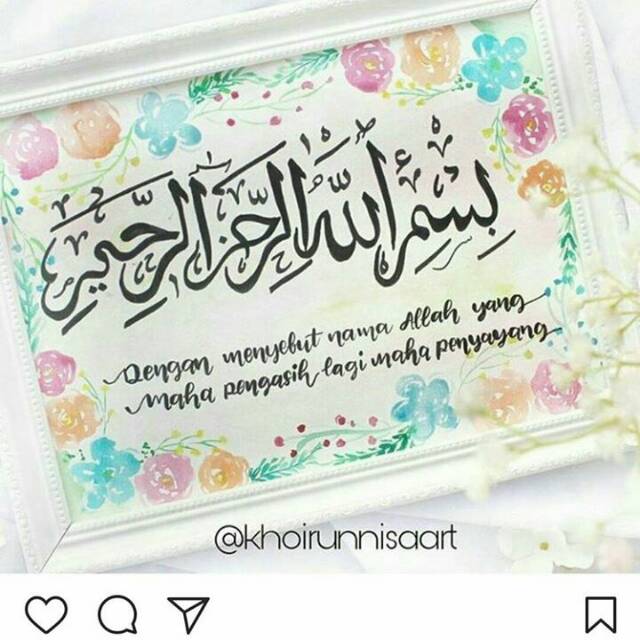 بِسْمِ اللّٰهِ الرَّحْمٰنِ الرَّحِيْمِ
Dengan menyebut nama Allah yang
maha pengasih lagi maha penyayang
@khoirunnisaart